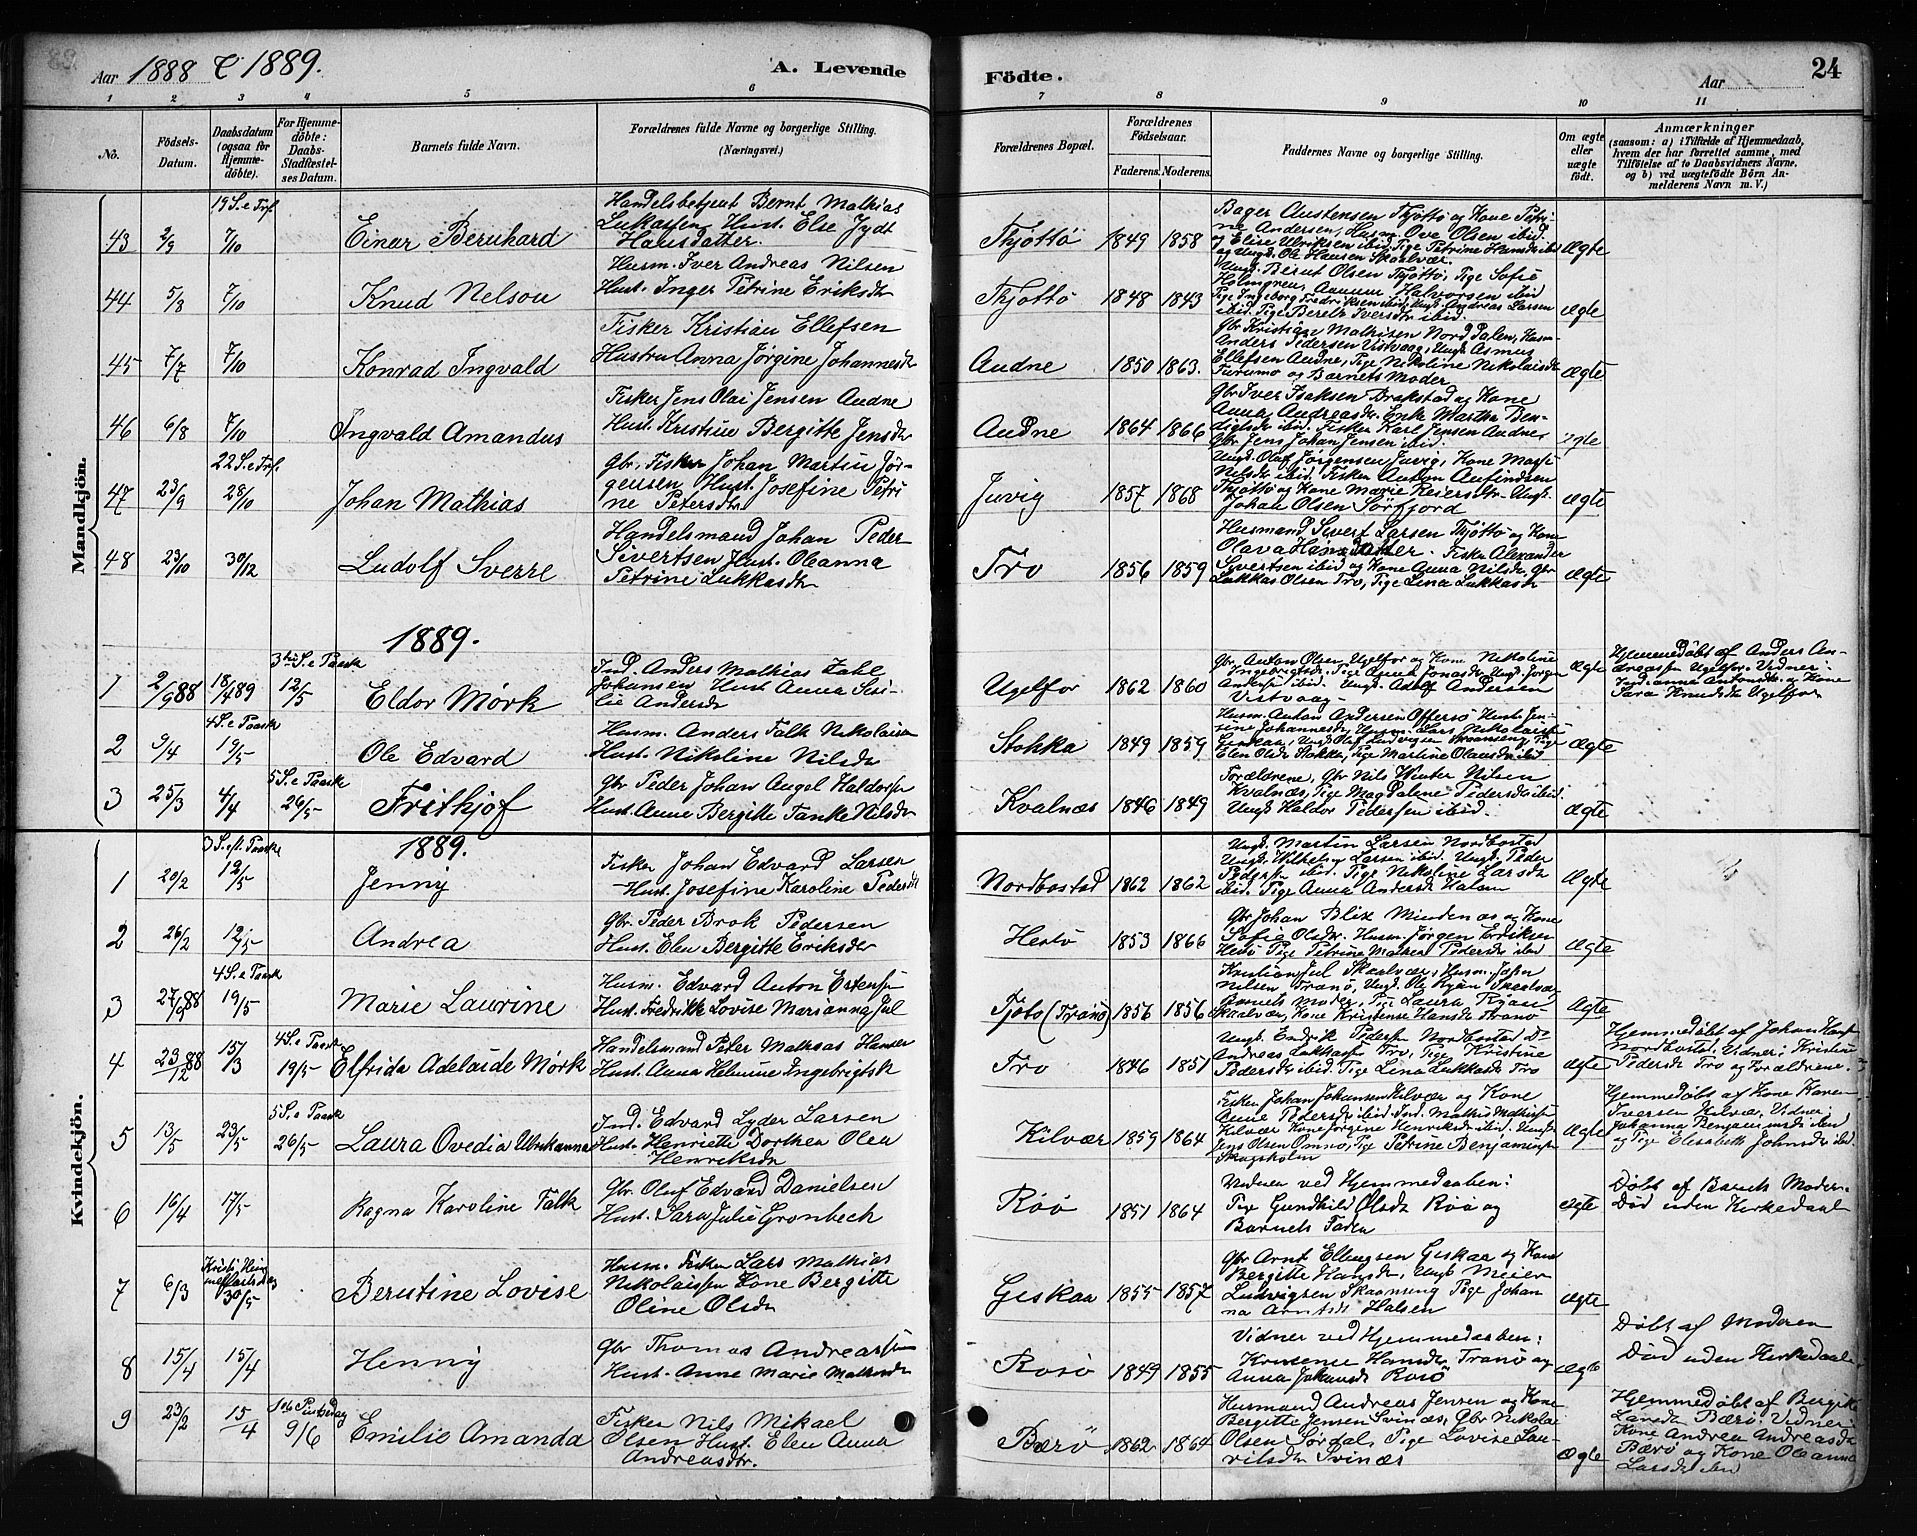 Aar 1888 & 1889.
A. Levende
Födte.
Aar
24
1 2 3 4 5 6 7 8 9 10 11
No.
Födsels-Datum.
Daabsdatum (ogsaa for Hjemme-döbte).
For Hjemme-döbte: Daabs-Stadfæstel-ses Datum.
Barnets fulde Navn.
Forældrenes fulde Navne og borgerlige Stilling. (Næringsvei.)
Forældrenes Bopæl.
Forældrenes Födselsaar.
Faderens. Moderens.
Faddernes Navne og borgerlige Stilling.
Om ægte eller uægte födt.
Anmærkninger
(saasom: a) i Tilfælde af Hjemmedaab, hvem der har forrettet samme, med Tilföielse af to Daabsvidners Navne, og b) ved uægtefödte Börn An-melderens Navn m. V.)
Mandkjön.
19 S. e Trf.
43 2/9 7/10 Einar Bernhard
Handelsbetjent Bernt Mathias
Lukassen Hust. Else Jydt
Hansdatter.
Thjöttö 1849 1858
Bager Austensen Thjöttö og Kone Petri-
ne Andersen, Husm. Ove Olsen ibid.
og Elise Ulriksen ibid. Tige Petrine Hansdr ibid
og Ungk. Ole Hansen Skaalvær.
Ægte
44 5/8 7/10 Knud Nelson
Husm. Iver Andreas Nilsen
Hust. Inger Petrine Eriksdr
Thjöttö 1848 1843
Ungk. Bernt Olsen Thjöttö, Pige Sofie
Pige Ingeborg Fredriksen ibid. Ungk. Andreas Larsen
ibid. Pige Berete Iversdtr ibid.
Ægte
45 7/7 7/10 Konrad Ingvald
Fisker Kristian Ellefsen
Hustru Anna Jörgine Johannesdr
Audne 1850 1863.
Gbr Kristian Mathisen Nord Dalen, Husm
Anders Pedersen Vistvaag, Ungk. Asmus
Ellefsen Audne, Pige Nikoline Nikolaisdr
Furumo og Barnets Moder
Ægte
46 6/8 7/10 Ingvald Amandus
Fisker Jens Olai Jensen Audne
Hust. Kristine Bergitte Jensdr
Audne 1864 1866
Gbr Iver Isaksen Brækstad og Kone
Anna Andreasdr. Enke Marthe Ben-
digtsdr ibid. Fisker Karl Jensen Audne
Gbr Jens Johan Jensen ibid.
Ægte
22 S. e Trf.
47 23/9 28/10 Johan Mathias
Gbr. Fisker Johan Martin Jör-
gensen Hust. Josefine Petri
ne Petersdtr
Juvig 1857 1868
Ungk. Olaf Jörgensen Juvig, Kone Marfi
Nilsdr ibid. Fisker Anton Anfindsen
Thjöttö og Kone Marie Reiersdtr. Ungk.
Johan Olsen Sörfjord
Ægte
48 23/10 30/12 Ludolf Sverre
Handelsmand Johan Peder
Sivertsen Hust. Oleanna
Petrine Lukkasdr
Tro 1856 1859
Husmand Sivert Larsen Thjöttö og Kone
Olava Hansdatter. Fisker Alexander
Sivertsen ibid og Kone Anna Nilsdr, Gbr
Lukkas Olsen Tro, Pige Lina Lukkasdr
Ægte
1889.
3die S. e Paask
1 2/9 88 18/4 89 12/5 Eldor Mörk
Ind. Anders Mathias Zahl
Johansen Hust. Anna Sesi-
lie Andersdr
Ugelfor 1862 1860
Gbr. Anton Olsen Ugelfor og Kone Nikoline
Ingebrigtsdr. Pige Anna Jonasdr. Ungk. Jörgen
Andersen ibid. Ungk. Adolf Andersen
Vistvaag
Ægte
Hjemmedöbt af Anders An-
dreassen Ugelfor. Vidner:
Ind. anna Antonsdr og Kone
Sara Knudsdr Ugelfor
4 S. e Paask
2 9/4 19/5 Ole Edvard
Husm. Anders Falk Nikolaisen
Hust. Nikoline Nilsdr
Stokka 1849 1859
Husm. Anton Andersen Offersö Hust. Jen-
sine Johannesdr, Husm. Lars Nikolaisen
Geiskaa, Ungk Olaf Ludvigsen Skaanseng, Pige
Elen Olsdr Stokka, Pige Martine Olausdr ibid
Ægte
5 S. e Paask
3 25/3 4/4 26/5 Frithjof
Gbr Peder Johan Angel Haldorsen
Hust. Anne Bergitte Tanke Nilsdr
Kvalnæs 1846 1849
Forældrene, Gbr Nils Winter Nilsen
Kvalnæs, Pige Magdalene Pedersdr ibid.
Ungk Haldor Pedersen ibid.
Ægte
Kvindekjön.
3 S. eft. Paaske
1889.
1 20/2 12/5 Jenny
Fisker Johan Edvard Larsen
Hust. Josefine Karoline Pedersdr
Nordbostad 1862 1862
Ungk. Martin Larsen Nordbostad
Ungk. Wilhelm Larsen ibid. Ungk. Peder
Pedersen ibid. Pige Nikoline Larsdr
ibid. Pige Anna Andersdr Halsen
Ægte
2 26/2 12/5 Andrea
Gbr. Peder Brok Pedersen
Hust. Elen Bergitte Eriksdr
Hestö 1853 1866
Gbr Johan Blix Mindenæs og Kone
Sofie Olsdr. Husm. Jörgen Eriksen
Hestö Pige Petrine Maren Pedersdr ibid
Ægte
4 S. e Paask
3 27/9 88 19/5 Marie Laurine
Husm. Edvard Anton Estensen
Hust. Fredrikke Lovise Marianna Jul
Tjötö (Tranö) 1856 1856
Kristian Jul Skaalvær, Husm. John
Nilsen Tranö, Ungk. Ole Ryan Skaalvær,
Barnets Moder, Pige Laura Ryan
Skaalvær, Kone Kristense Hansdr Tranö
Ægte
4 S. e Paask
4 23/12 88 15/3 19/5 Elfrida Adelaide Mörk
Handelsmand Peter Mathias Hansen
Hust. Anna Helmine Ingebrigtsdr
Tro 1846 1851
Ungk. Endrik Pedersen Nordbostad Do
Andreas Lukkassen Tro, Pige Kristine
Pedersdr ibid. Pige Lina Lukkasdr Tro
Ægte
Hjemmedöbt af Johan Hans
Nordbostad. Vidner: Kristine
Pedersdr Tro og Forældrene.
5 S. e Paask
5 13/5 23/5 26/5 Laura Ovedia Ulrikanna
Ind. Edvard Lyder Larsen
Hust. Henriette Dorthea Olea
Henriksdr
Kilvær 1859 1864
Fisker Johan Johansen Kilvær og Kone
Anne Pedersdr ibid. Ind. Mathis Mathisen
Kilvær Kone Jörgine Henriksdr ibid. Ungk.
Jens Olsen Omnö, Pige Petrine Benjaminsdr
Skogsholm
Ægte
Hjemmedöbt af Kone Karen
Iversen Kilvær, Vidner:
Johanna Benjaminsdr ibid
og Pige Elisabeth Johnsdr ibid
6 16/4 17/5 Ragna Karoline Falk
Gbr. Oluf Edvard Danielsen
Hust. Sara Julie Grönbeck
Röö 1851 1864
Vidner ved Hjemmedaaben:
Pige Gundhild Olsdr Röö og
Barnets Fader
Ægte
Döbt af Barnets Moder.
Död uden Kirkedaab
Kristi Him
melfartsdag
7 6/3 30/5 Berntine Lovise
Husm. Fisker Lars Mathias
Nikolaisen Kone Bergitte
Oline Olsdr
Geiskaa 1855 1857
Gbr Arnt Ellingsen Geiskaa og Kone
Bergitte Hansdr, Ungk Meier
Ludvigsen Skaanseng Pige Johan
na Arntsdr Halsen
Ægte
8 15/4 15/4 Henny
Gbr Thomas Andreassen
Hust. Anne Marie Mathisdr
Rosö 1849 1855
Vidner ved Hjemmedaaben:
Kristense Hansdr Tranö og
Anna Johansdr Rosö
Ægte
Döbt af Moderen
Död uden Kirkedaab
1ste Pintsedag
9 23/2 15/4 9/6 Emilie Amanda
Fisker Nils Mikael
Olsen Hust. Elen Anna
Andreasdtr.
Bærö 1862 1864
Husmand Andreas Jensen og Kone
Bergitte Jensen Svinæs, Gbr Nikolai
Olsen Sördal, Pige Lovise Lau-
ritsdr Svinæs
Ægte
Hjemmedöbt af Bergitte
Larsdr Bærö. Vidner:
Kone Andrea Andreasdr
Bærö og Kone Oleanna
Larsdr ibid